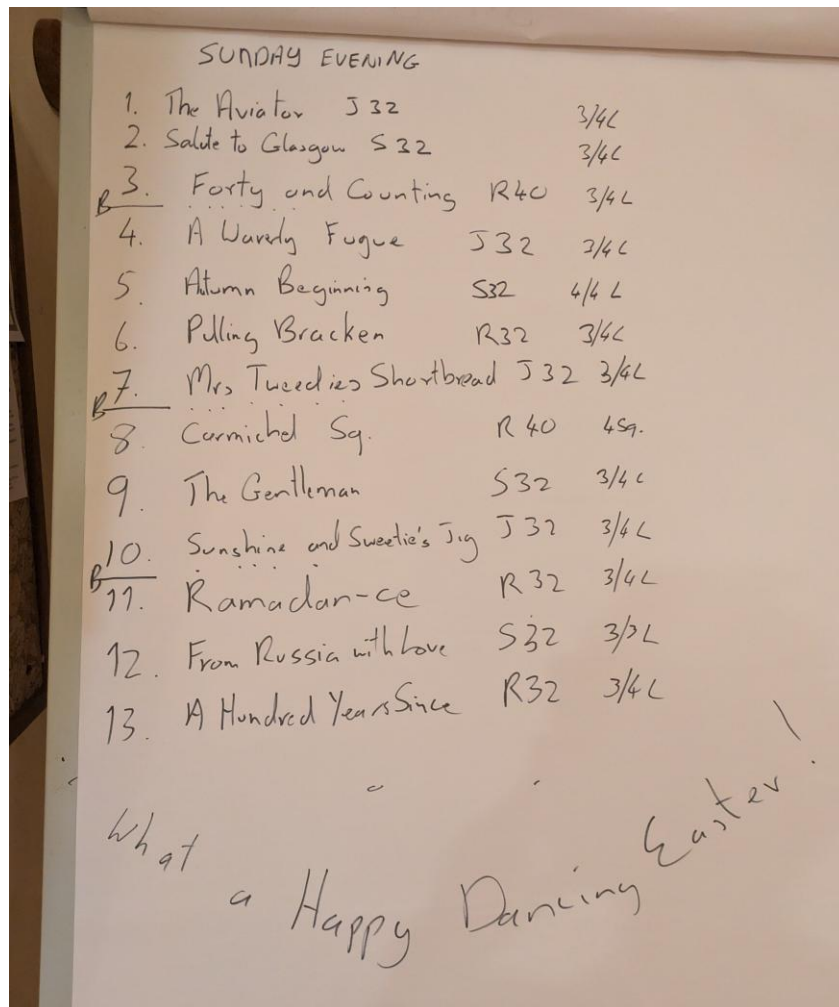 SUNDAY EVENING
1. The Aviator J32 3/4L
2. Salute to Glasgow S32 3/4L
B 3. Forty and Counting R40 3/4L
4. A Waverly Fugue J32 3/4L
5. Autumn Beginning S32 4/4 L
6. Pulling Bracken R32 3/4L
B 7. Mrs Tweedies Shortbread J32 3/4L
8. Carmichel Sq. R40 4Sq.
9. The Gentleman S32 3/4L
B 10. Sunshine and Sweetie's Jig J32 3/4L
11. Ramadan-ce R32 3/4L
12. From Russia with Love S32 3/3L
13. A Hundred Years Since R32 3/4L
What a Happy Dancing Easter!